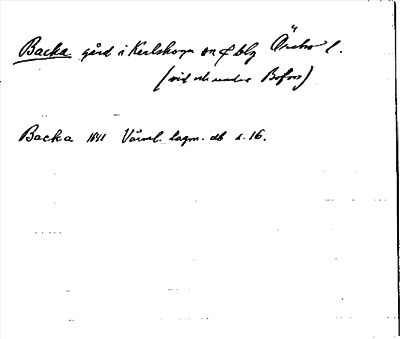 Backa gård i Karlskoga sn o blg Örebro l.
(vid och under Bofors)
Backa 1841 Värml. lagm. db s. 16.